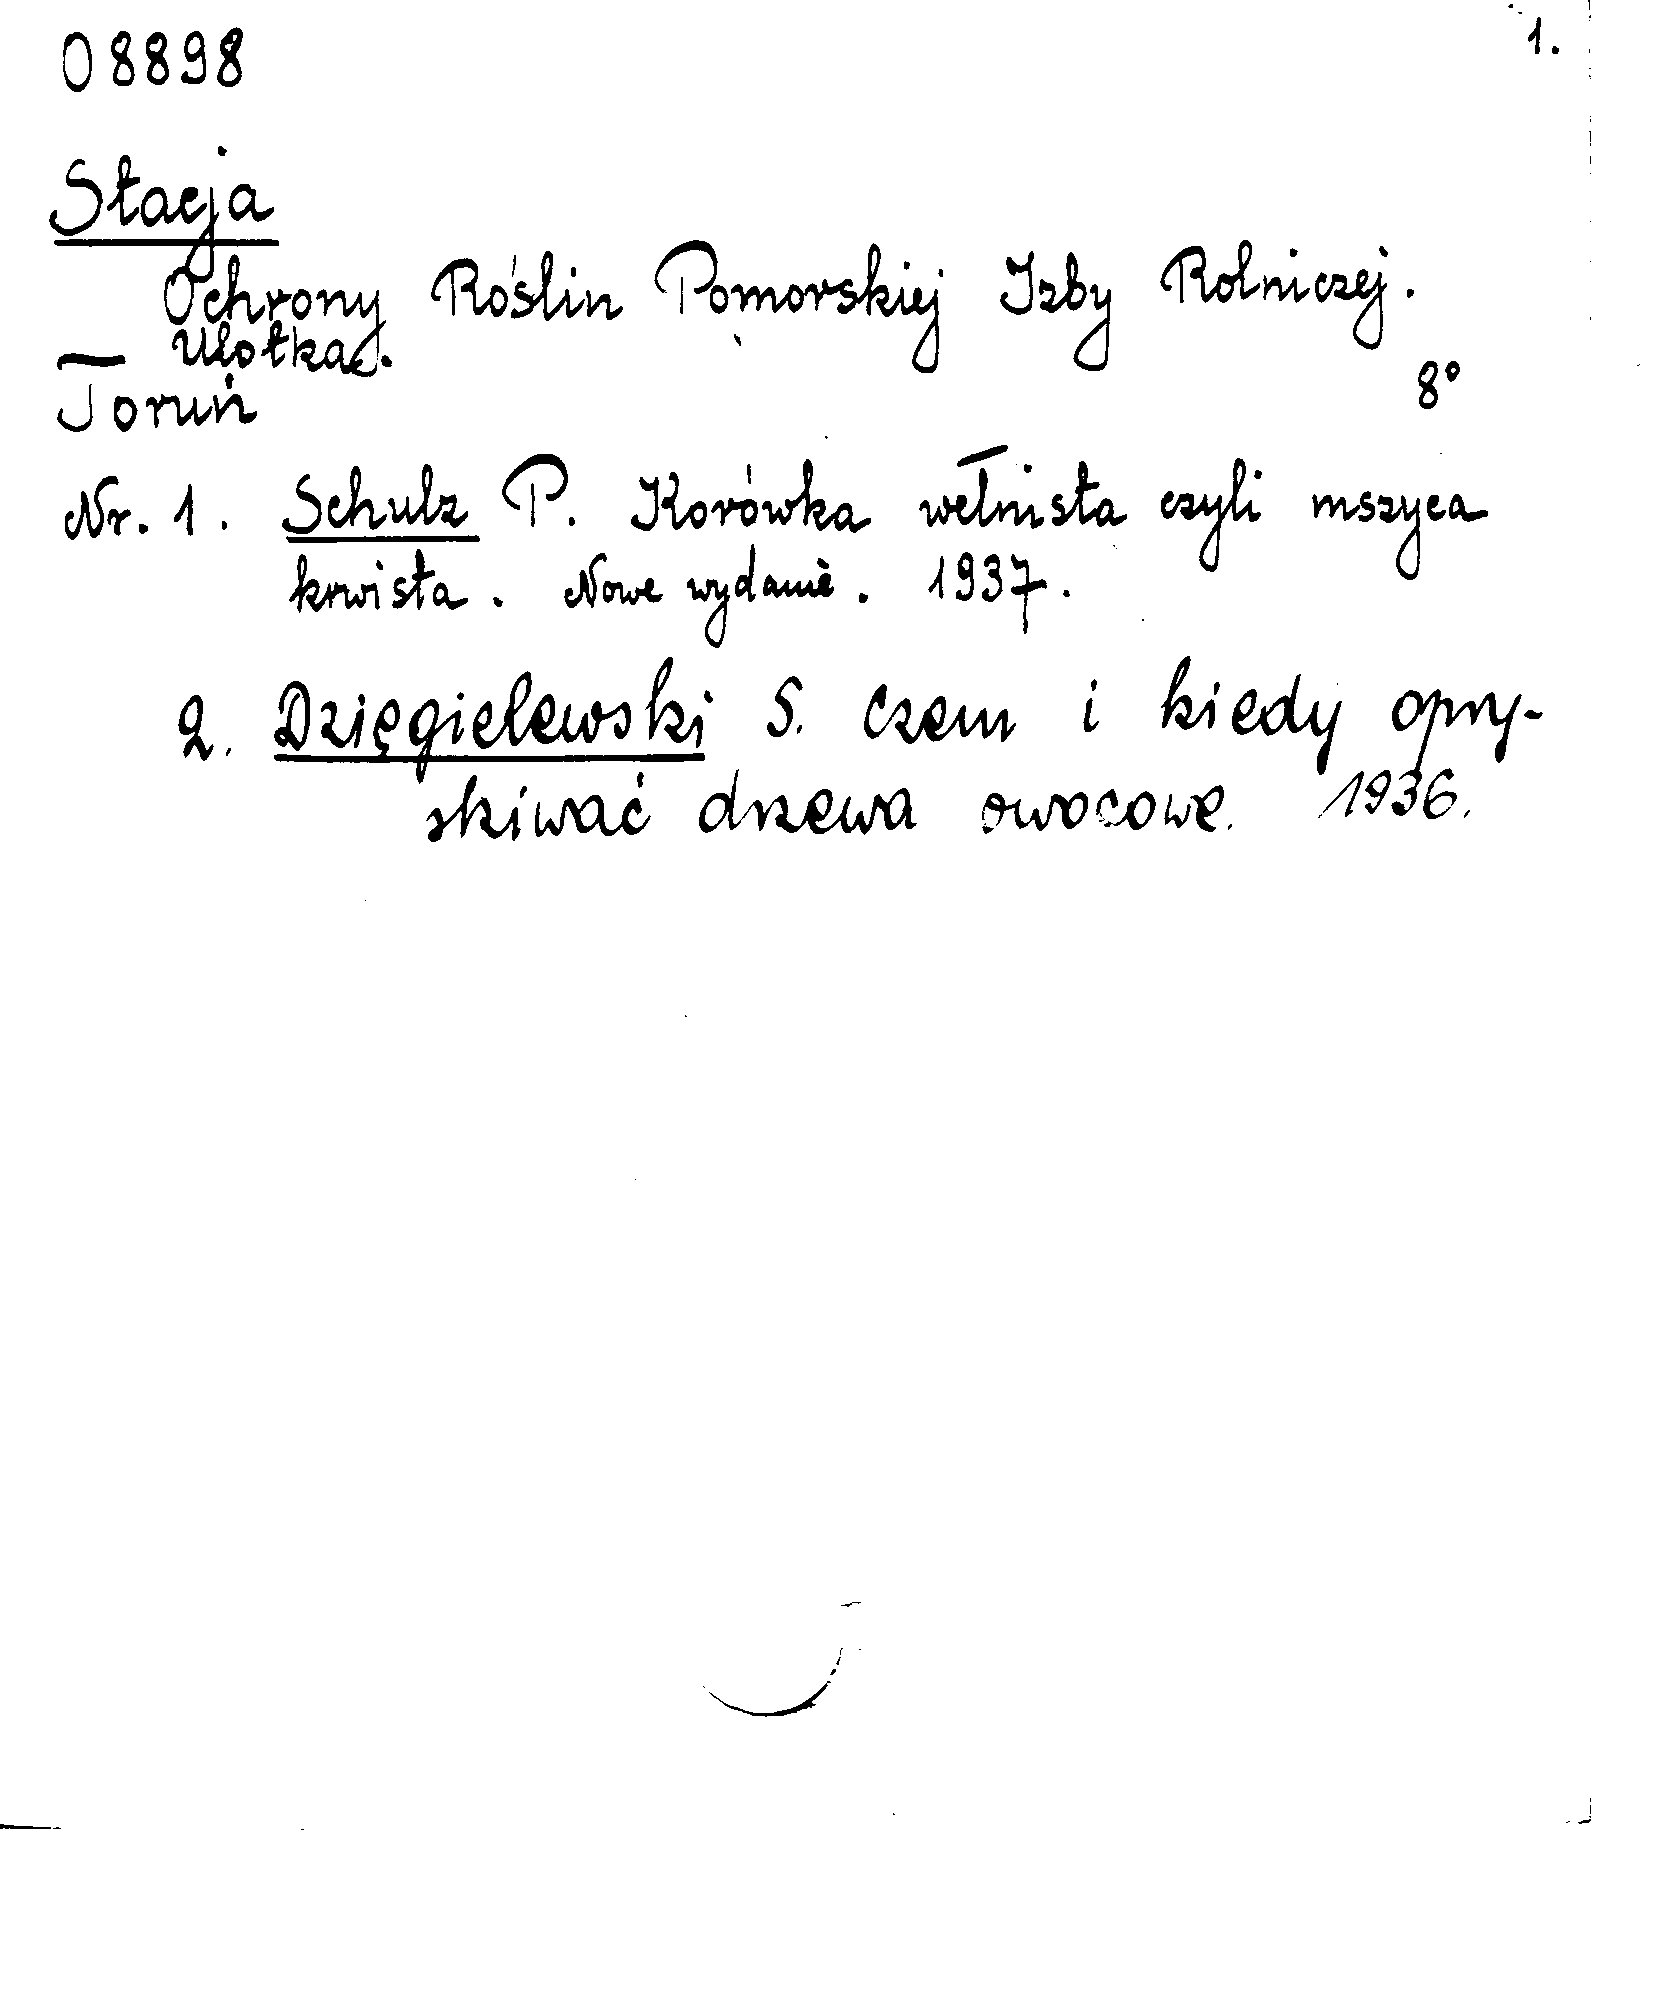 08898
1.
Stacja
Ochrony Roślin Pomorskiej Izby Rolniczej.
Ulotka.
Toruń 8°
Nr. 1. Schulz P. Korówka wełnista czyli mszyca
krwista. Nowe wydanie. 1937.
2. Dzięgielewski S. Czem i kiedy opry-
skiwać drzewa owocowe. 1936.